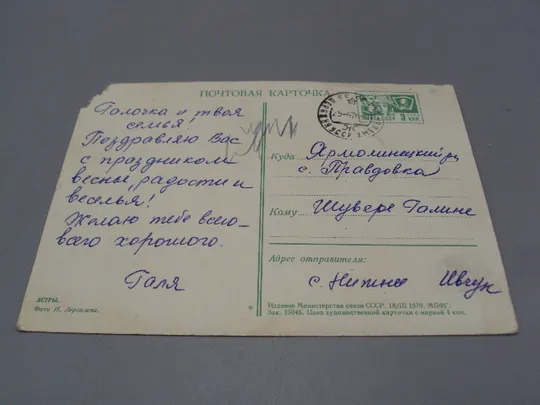 ПОЧТОВАЯ КАРТОЧКА
Галочка и твоя
семья!
Поздравляю Вас
с праздником
весны, радости и
веселья!
Желаю тебе всего-
всего хорошого.
Галя
АСТРЫ.
Куда Ярмолинецкий р-н
с. Правдовка
Кому Шувере Галине
Адрес отправителя:
с. Нижнее Ивчук
Издание Министерства связи СССР. 18/III 1970. МПФГ.
Зак. 15045. Цена художественной карточки с маркой 4 коп.